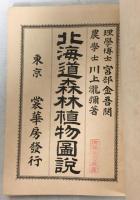 理學博士 宮部金吾閱
農學士 川上瀧彌著
北海道森林植物圖説
東京 裳華房發行